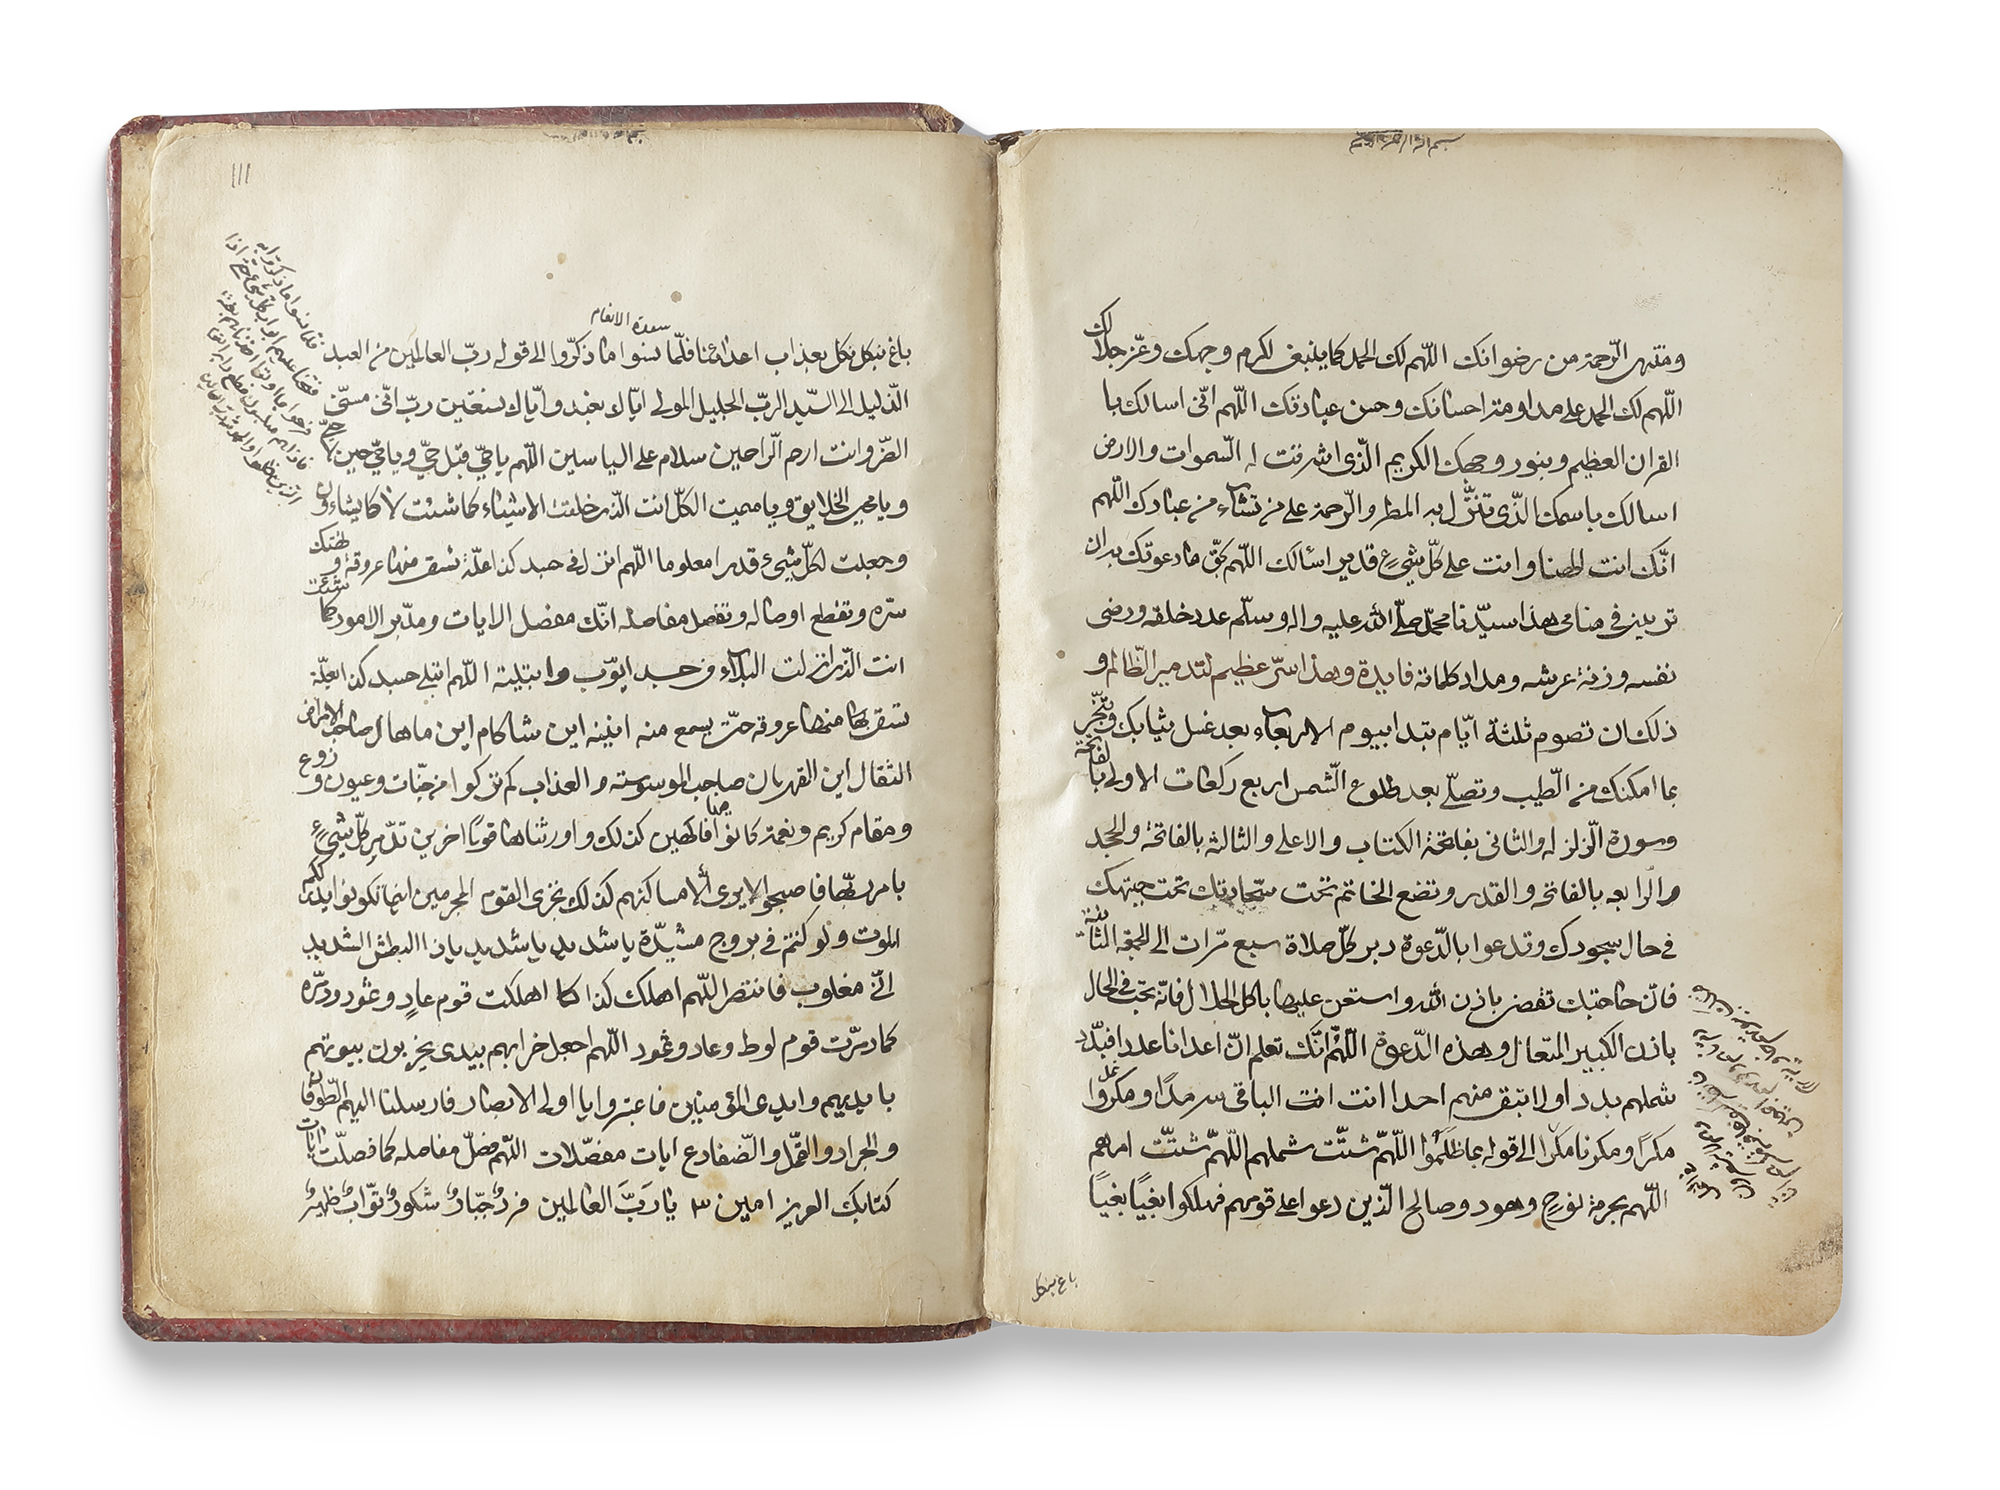 بسم الله الرحمن الرحيم
ومنتهى الرّحمة من رضوانك اللّهم لك الحمد كما ينبغى لكرم وجهك وعزّ جلالك
اللّهم لك الحمد على مداومة احسانك وحسن عبادتك اللّهم انّى اسالك با
القران العظيم وبنور وجهك الكريم الّذى اشرقت له السّموات والارض
اسالك باسمك الّذى تنزّل به المطر والرّحمة على من تشاء من عبادك اللّهم
انّك انت لطفنا وانت على كلّ شيءٍ قدير اسالك اللّهم بحقّ ما دعوتك به ان
ترينى في منامى هذا سيّدنا محمّد صلّى الله عليه واله وسلّم عدد خلقه ورضى
نفسه وزنة عرشه ومداد كلماته فايدة وهذا سرّ عظيم لتدمير الظّالم و
ذلك ان تصوم ثلثة ايّام تبدا بيوم الاربعاء بعد غسل ثيابك وتبخّر
بما امكنك من الطّيب وتصلّى بعد طلوع الشّمس اربع ركعات الاولى بالفاتحة
وسورة الزلزله والثانى بفاتحة الكتاب والاعلى والثالثة بالفاتحة والحمد
والرّابعه بالفاتحه والقدر وتضع الخاتم تحت سجّادتك تحت جبهتك
في حال سجودك وتدعوا بالدّعوة دبر كلّ صلاة سبع مرّات الى الجمعة الثانية
فانّ حاجتك تقضى باذن الله واستعن عليها باكل الحلال فانّه يجب فى الحال
باذن الكبير المتعال وهذه الدّعوة اللّهم انّك تعلم انّ اعدانا عددا فبدّد
شملهم بددا ولا تبق منهم احدا انت انت الباقى سرمدًا ومكروا
مكرًا ومكرنا مكرًا الى قوله بما ظلموا اللّهمّ شتّت شملهم اللّهمّ شتّت امرهم
اللّهم بحرمة نوحٍ وهود وصالح الّذين دعوا على قومهم فهلكوا بغيًا بغيًا
باغ بنكل
١١١
سورة الانعام
باغ بنكل نكل بعذاب اعدائنا فلمّا نسوا ما ذكّروا الى قوله ربّ العالمين من العبد
الذليل الى السّيد الربّ الجليل المولى ايّاك نعبد وايّاك نستعين ربّ انّى مسّنى
الضّر وانت ارحم الرّاحمين سلام على الياسين اللّهم يا حىّ قبل حىّ ويا حىّ حين لا حىّ
ويا محيى الخلايق ويا مميت الكلّ انت الّذى خلقت الاشياء كما شئت لا كما يشاءون
وجعلت لكلّ شيء قدرا معلوما اللّهم انزل فى جسد كذا علّة تسقى منها عروقه و
سرّه وتقطع اوصاله وتفصل مفاصله انّك مفصل الايات ومدّبر الامور كما شئت
انت الّذى انزلت البلاء فى جسد ايّوب وابتليته اللّهم ابتلى جسد كذا بعلّة
تسقى بها منها عروقه حتّى يسمع منه انينه اين شاكام اين ماهال صاحب الامراض
الثقال اين القهرمان صاحب الموسوسته والعذاب كم تركوا من جنّات وعيون وزروع
ومقام كريم ونعمة كانوا فيها فاكهين كذلك واورثناها قومًا اخرين تدّمر كلّ شيءٍ
بامر ربّها فاصبحوا لا يرى الّا مساكنهم كذلك نجزى القوم المجرمين اينما تكونوا يدرككم
الموت ولو كنتم في بروج مشيّدة يا شديد يا شديد يا ذا البطش الشديد
انّى مغلوب فانتصر اللّهم اهلك كذا كما اهلكت قوم عادٍ وثمود ودمّره
كما دمرّت قوم لوط وعاد وثمود اللّهم اجعل خرابهم بيدى يخربون بيوتهم
بايديهم وايدى المؤمنين فاعتبروا يا اولى الابصار فارسلنا اليهم الطّوفان
والجراد والقمّل والضّفادع ايات مفصّلات اللّهم فصّل مفاصله كما فصلّت ايات
كتابك العزيز امين ٣ يا ربّ العالمين فردٌ جبّارٌ شكورٌ توّابٌ ظهيرٌ
فلمّا نسوا ما ذكّروا به
فتحنا عليهم ابواب كلّ شيء حتّى اذا
فرحوا بما اوتوا اخذناهم بغتة
فاذاهم مبلسون فقطع دابر القوم
الذين ظلموا والحمد لله ربّ العالمين